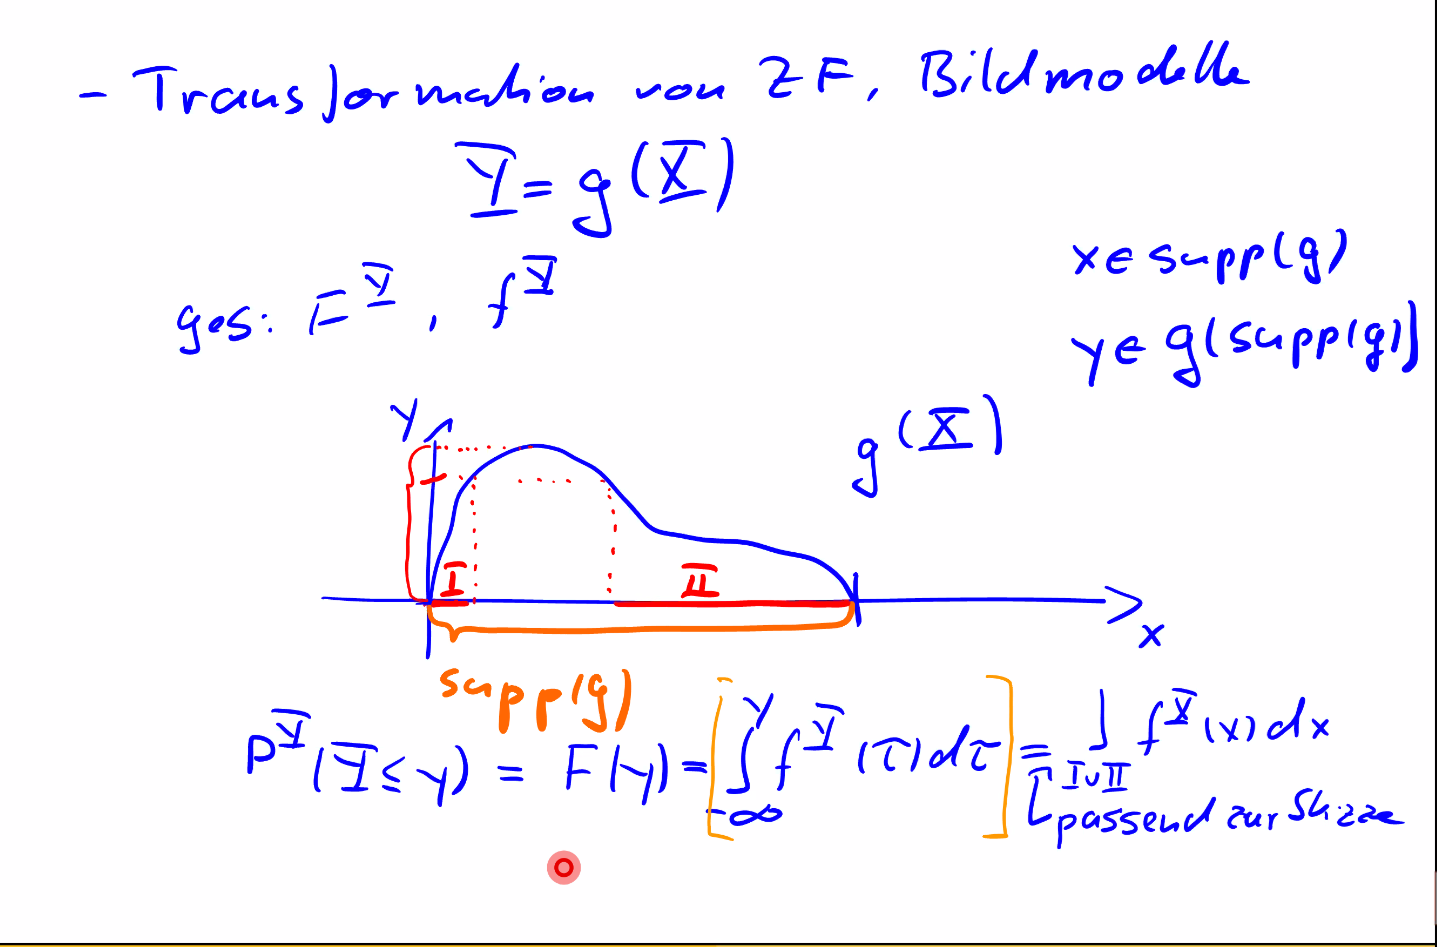 - Transformation von ZF, Bildmodelle
Y = g(X)
x ∈ supp(g)
ges: F^Y, f^Y
y ∈ g(supp(g))
y
g(X)
I
II
x
supp(g)
P^Y(Y ≤ y) = F(y) = [∫_{-∞}^{y} f^Y(τ)dτ] = ∫_{I∪II} f^X(x)dx
passend zur Skizze